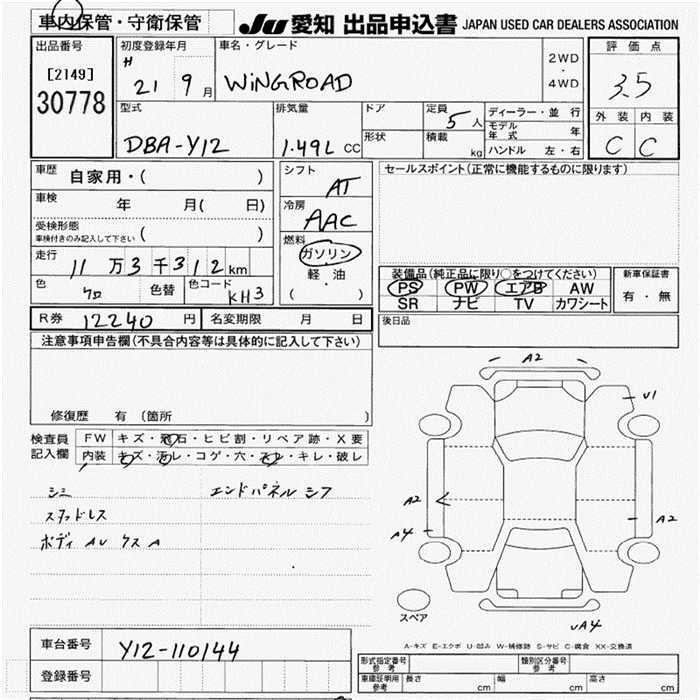 車内保管・守衛保管
JU 愛知 出品申込書 JAPAN USED CAR DEALERS ASSOCIATION
出品番号
[2149]
30778
初度登録年月
H 21 9 月
車名・グレード
WiNGROAD
2WD
・
4WD
評価点
3.5
外装 内装
C C
型式
DBA-Y12
排気量
1.49L CC
ドア
形状
定員 5 人
積載 kg
ディーラー・並行
モデル年式 年
ハンドル 左・右
車歴 自家用・( )
車検 年 月( 日)
受検形態
車検付きのみ記入して下さい ( )
走行 11 万 3 千 312 km
色 クロ 色替 色コード KH3
シフト
AT
冷房
AAC
燃料
ガソリン
軽油
( )
セールスポイント(正常に機能するものに限ります)
装備品(純正品に限り○をつけてください)
PS PW エアB AW
SR ナビ TV カワシート
新車保証書
有・無
後日品
R券 12240 円 名変期限 月 日
注意事項申告欄(不具合内容等は具体的に記入して下さい)
修復歴 有 (箇所 )
検査員
記入欄
FW キズ・飛石・ヒビ割・リペア跡・X要
内装 キズ・汚レ・コゲ・穴・スレ・キレ・破レ
シミ
スタッドレス
ボディ AU クス A
エンドパネル シワ
A2
U1
A2
A4
A2
UA4
スペア
A-キズ E-エクボ U-凹み W-補修跡 S-サビ C-腐食 XX-交換済
車台番号 Y12-110144
登録番号
形式指定番号 参考
類別区分番号 参考
車庫証明用 参考 長さ cm 幅 cm 高さ cm